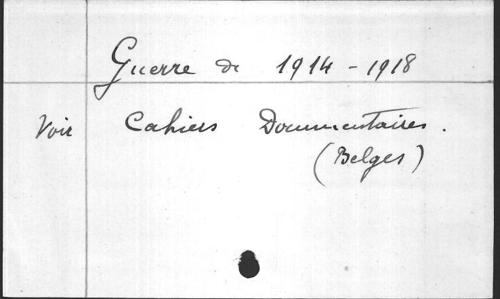 Guerre de 1914-1918
Voir Cahiers Documentaires.
(Belges)